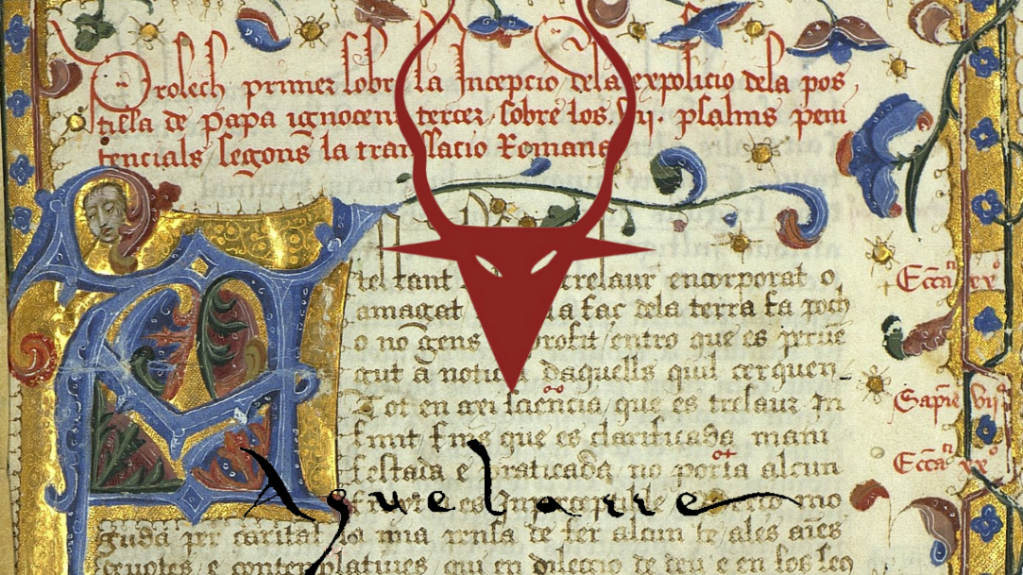 Prolech primer sobre la Incepcio dela exposicio dela pos
tilla de papa ignocen tercer sobre los .vij. psalms peni
tencials segons la translacio Romana
tel tant tresaur encorporat o
amagat la fac dela terra fa poch
Eccā xxº
o no gens profit entro que es pervē
gut a noticia daquells quil cerquen
Tot en axi sciencia que es tresaur in
Sapiē vijº
finit que es clarificada mani
festada e praticada no porta alcun
Eccā xxº
Aquelarre
guda per caritat la mia pensa de fer alcun
devotes e contemplatives qui en dileccio de deu e en los